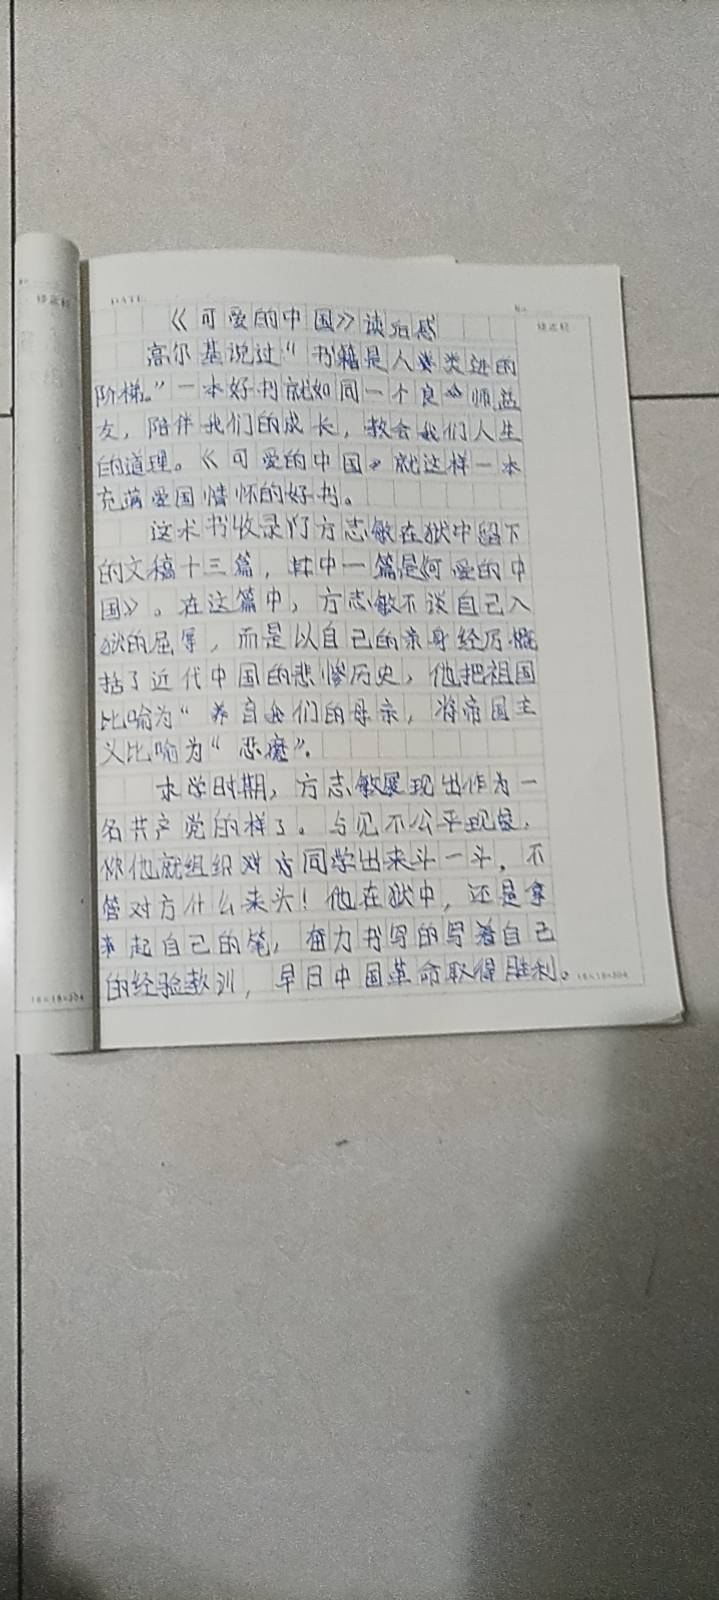 DATE
《可爱的中国》读后感
高尔基说过“书籍是人类进的
阶梯。”一本好书就如同一个良师益
友，陪伴我们的成长，教会我们人生
的道理。《可爱的中国》就这样一本
充满爱国情怀的好书。
这本书收录了方志敏在狱中留下
的文稿十三篇，其中一篇是《可爱的中
国》。在这篇中，方志敏不谈自己入
狱的屈辱，而是以自己的亲身经历概
括了近代中国的悲惨历史，他把祖国
比喻为“养育我们的母亲，将帝国主
义比喻为“恶魔”。
求学时期，方志敏展现出作为一
名共产党的样子。与见不公平现象，
他就组织对方同学出来斗一斗，不
管对方什么来头！他在狱中，还是拿
起自己的笔，奋力书写的写着自己
的经验教训，早日中国革命取得胜利。
18×18=304
18×18=304